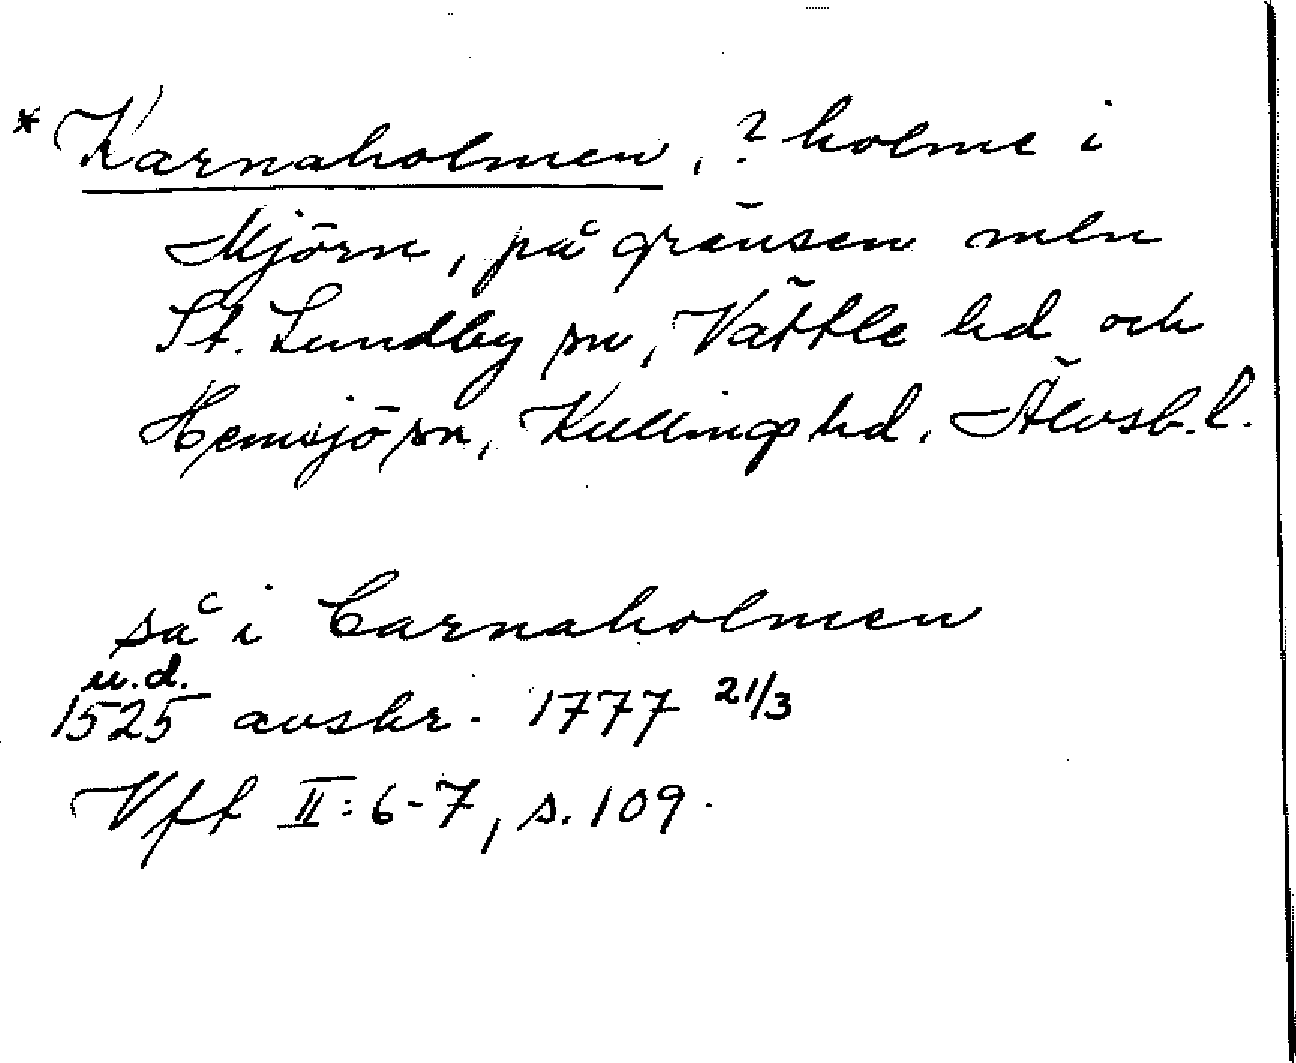 * Karnaholmen, ? holme i
Mjörn, på gränsen mln
St. Lundby sn, Vättle hd och
Hemsjö sn, Kullings hd, Älvsb. l.
så i Carnaholmen
u.d.
1525 avskr. 1777 21/3
Vft II: 6-7, s. 109.